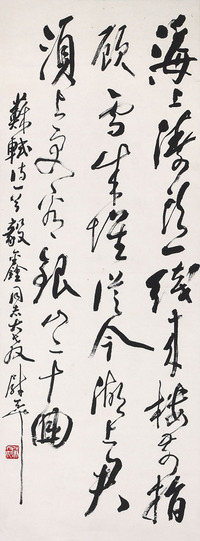 海上濤頭一线來樓前指
顧雪成堆從今潮上君
須上更看銀山二十回
蘇軾诗一首毅鑫同志大教